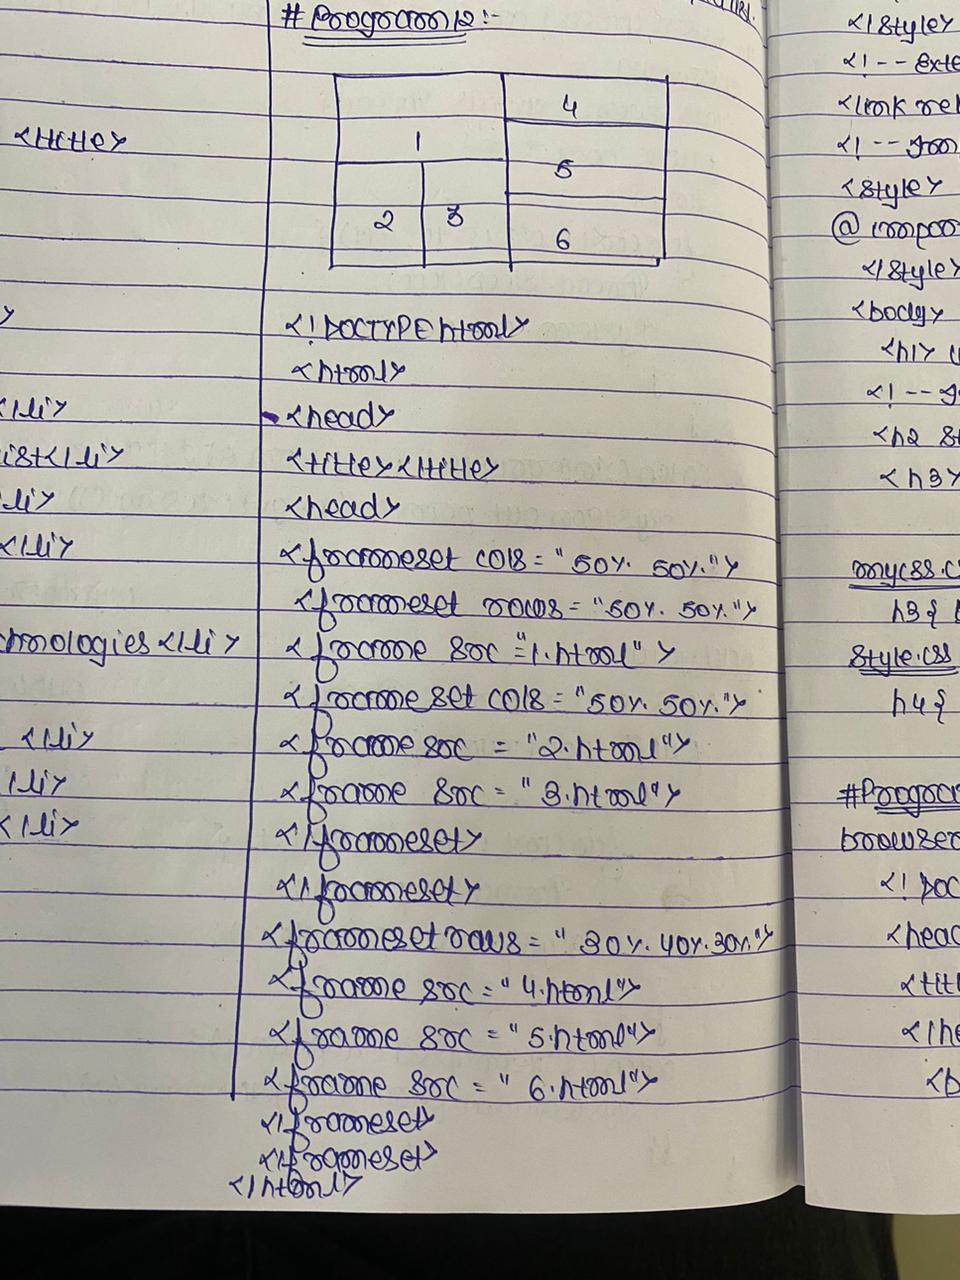 <title>
</li>
ist</li>
li>
</li>
chnologies </li>
</li>
li>
</li>
# Program 12:-
4
1
5
2 3
6
<!DOCTYPE html>
<html>
<head>
<title></title>
<head>
<frameset cols = "50%. 50%.">
<frameset rows = "50%. 50%.">
<frame src = "1.html">
<frame set cols = "50%. 50%.">
<frame src = "2.html">
<frame src = "3.html">
</frameset>
</frameset>
<frameset rows = "30%. 40%. 30%.">
<frame src = "4.html">
<frame src = "5.html">
<frame src = "6.html">
</frameset>
</frameset>
</html>
</style>
<!-- exte
<link rel
<!--
<style>
@ impo
</style>
<body>
<h1>
<!--
<h2 st
<h3>
mycss.c
h3 {
style.css
h4 {
# Progra
browser
<! DOC
<head
<tit
</he
<b